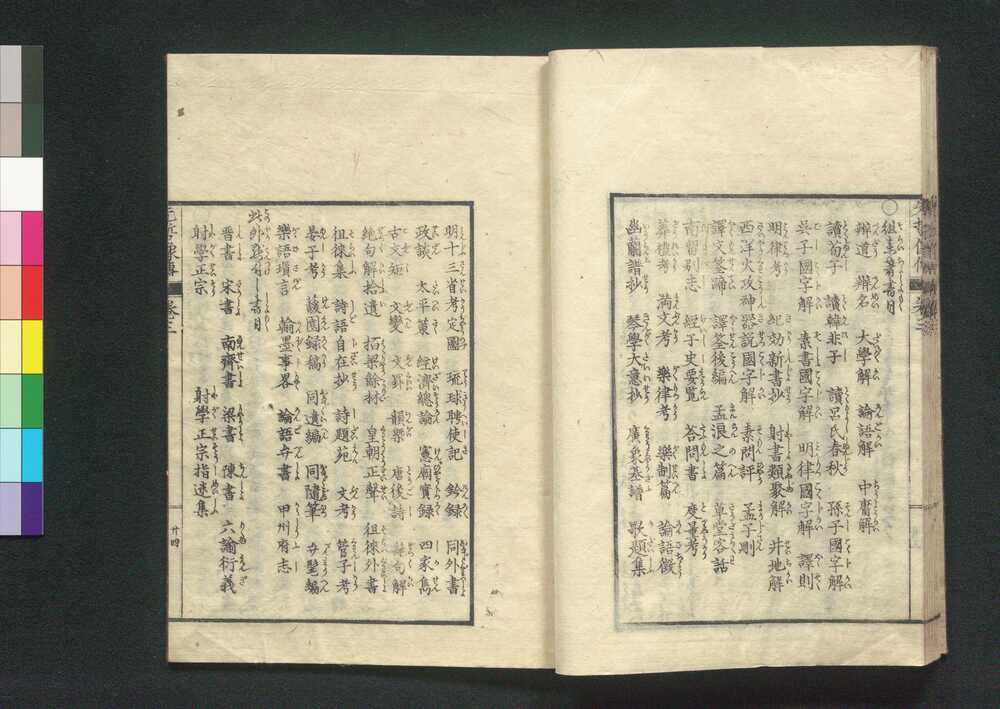 ○徂來著書目
辨道 辨名 大學解 論語解 中庸解
讀荀子 讀韓非子 讀呂氏春秋 孫子國字解
吳子國字解 素書國字解 明律國字解 譯則
明律考 紀効新書抄 射書類聚解 井地解
西洋火攻神器説國字解 素問評 孟子刪
譯文筌蹄 譯筌後編 孟浪之篇 草堂客話
南留別志 經子史要覧 答問書 度量考
葬禮考 満文考 樂律考 樂制篇 論語徵
幽蘭譜抄 琴學大意抄 廣象棊譜 歌題集
明十三省考定圖 琉球聘使記 鈐録 同外書
政談 太平策 經濟總論 憲廟實録 四家雋
古文矩 文變 文罫 韻槩 唐後詩 絶句解
絶句解拾遺 拓梁餘材 皇朝正聲 徂徠外書
徂徠集 詩語自在抄 詩題苑 文考 管子考
晏子考 蘐園録稿 同遺編 同隨筆 弁髦編
樂語瑣言 翰墨事畧 論語弁書 甲州府志
此外點有し書目
晋書 宋書 南齊書 梁書 陳書 六諭衍義
射學正宗 射學正宗指迷集
卷三
廿四